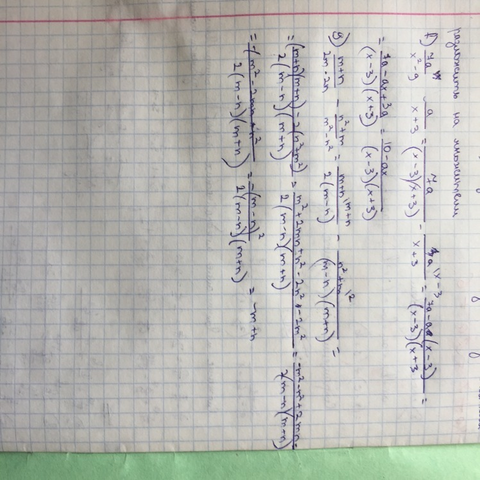 разложить на множители
1) 7a/(x²-9) - a/(x+3) = 7a/((x-3)(x+3)) - a\x-3/(x+3) = (7a-a(x-3))/((x-3)(x+3)) =
= (7a-ax+3a)/((x-3)(x+3)) = (10-ax)/((x-3)(x+3))
3) (m+n)/(2m-2n) - (n²+m²)/(m²-n²) = (m+n)\m+n/(2(m-n)) - (n²+m²)\2/((m-n)(m+n)) =
= ((m+n)(m+n)-2(n²+m²))/(2(m-n)(m+n)) = (m²+2mn+n²-2n²-2m²)/(2(m-n)(m+n)) = (-m²-n²+2mn)/(2(m-n)(m+n)) =
= -(m²-2mn+n²)/(2(m-n)(m+n)) = -(m-n)²/(2(m-n)(m+n)) = -m+n